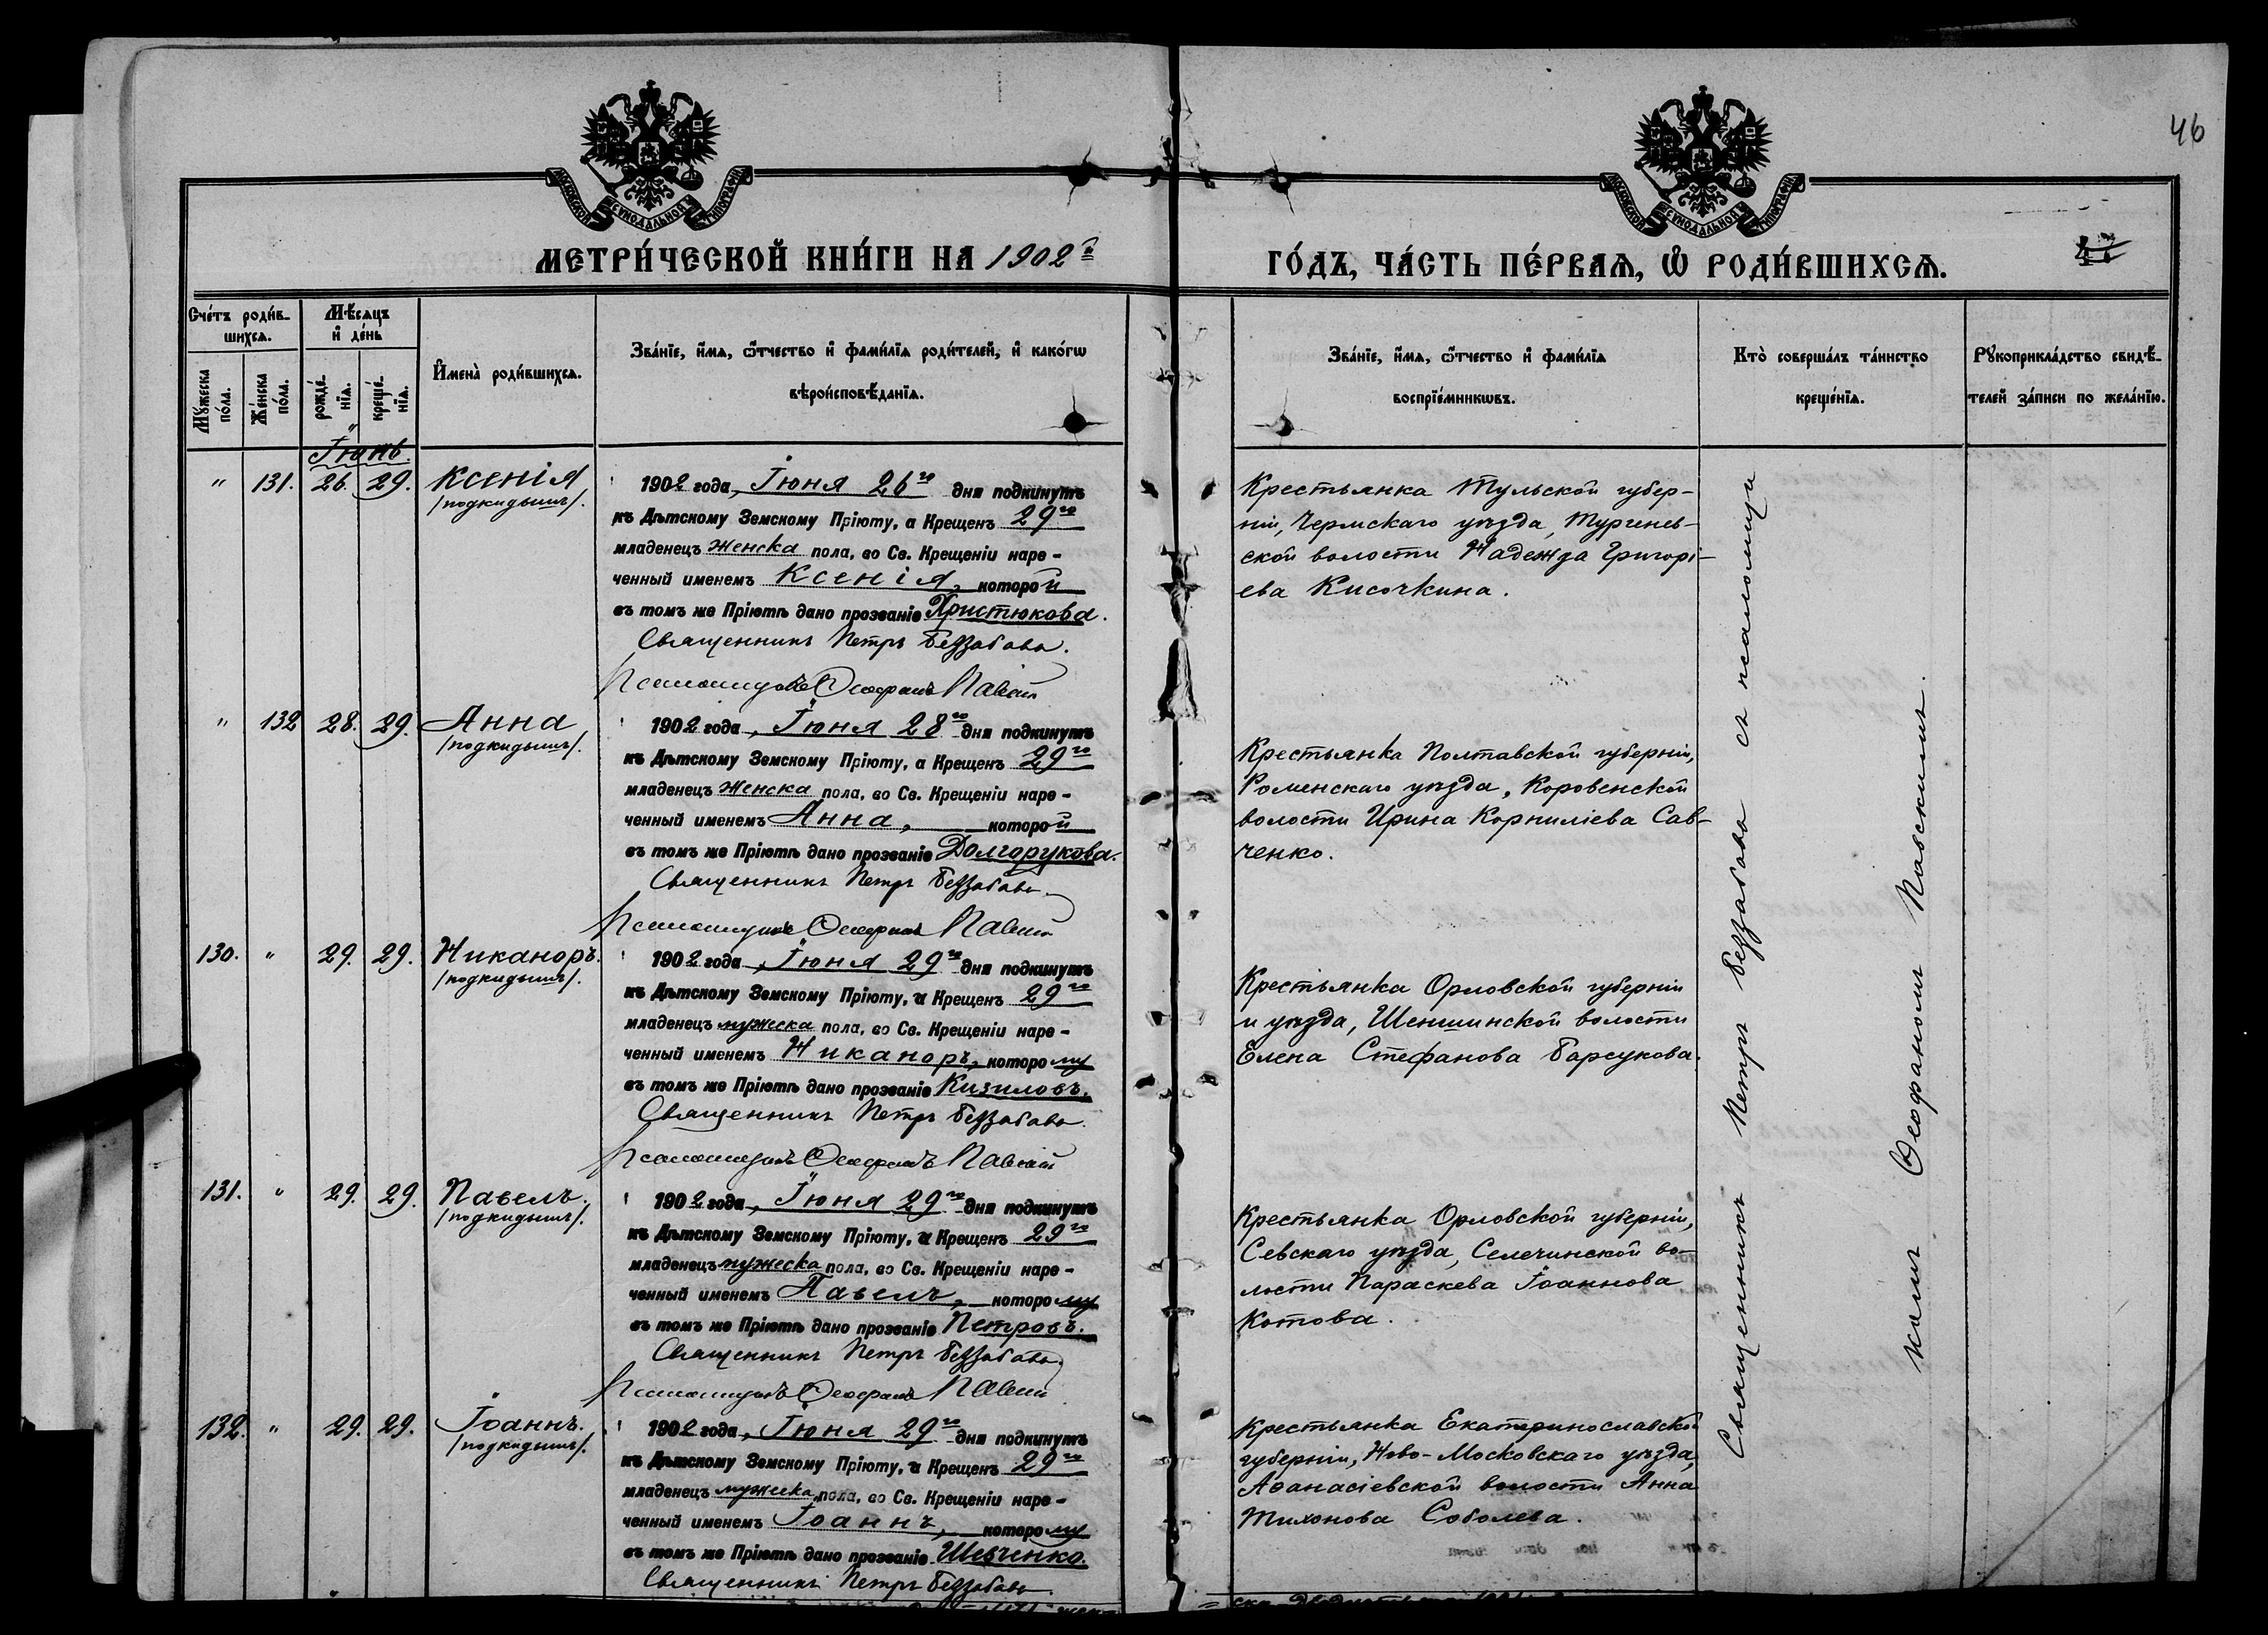 46
МОСКОВСКОЙ СѴНОДАЛЬНОЙ ТИПОГРАФІИ
МОСКОВСКОЙ СѴНОДАЛЬНОЙ ТИПОГРАФІИ
МЕТРИ́ЧЕСКОЙ КНИ́ГИ НА 1902й
ГО́ДЪ, ЧА́СТЬ ПЕ́РВАѦ, Ѡ҆ РОДИ́ВШИХСѦ.
Сче́тъ роди́в-
шихсѧ.
Мѣ́сѧцъ
и҆ де́нь
Мꙋжеска
по́ла.
Же́нска
по́ла.
рожде́-
нїѧ.
креще́-
нїѧ.
И҆мена̀ роди́вшихсѧ.
Зва́нїе, и҆́мѧ, ѻ҆́тчество и҆ фами́лїѧ роди́телей, и҆ како́гѡ
вѣроисповѣ́данїѧ.
Зва́нїе, и҆́мѧ, ѻ҆́тчество и҆ фами́лїѧ
воспрїе́мникѡвъ.
Кто̀ соверша́лъ та́инство
креще́нїѧ.
Рꙋкоприкла́дство свидѣ́-
телей за́писи по жела́нїю.
Іюнь.
" 131. 26. 29. Ксенія
/подкидышъ/.
1902 года, Іюня 26го дня подкинутъ
къ Дѣтскому Земскому Пріюту, а Крещенъ 29го
младенецъ женска пола, во Св. Крещеніи наре-
ченный именемъ Ксенія, которой
въ томъ же Пріютѣ дано прозваніе Христюкова.
Священникъ Петръ Беззабава.
Псаломщикъ Ѳеофанъ Павскій
Крестьянка Тульской губер-
ніи, Чермскаго уѣзда, Тургенев-
ской волости Надежда Григорі-
ева Кисочкина.
" 132 28. 29. Анна
/подкидышъ/.
1902 года, Іюня 28го дня подкинутъ
къ Дѣтскому Земскому Пріюту, а Крещенъ 29го
младенецъ женска пола, во Св. Крещеніи наре-
ченный именемъ Анна, которой
въ томъ же Пріютѣ дано прозваніе Долгорукова.
Священникъ Петръ Беззабава
Псаломщикъ Ѳеофанъ Павскій
Крестьянка Полтавской губерніи,
Роменскаго уѣзда, Коровенской
волости Ирина Корниліева Сав-
ченко.
130. " 29. 29. Никаноръ.
/подкидышъ/.
1902 года, Іюня 29го дня подкинутъ
къ Дѣтскому Земскому Пріюту, и Крещенъ 29го
младенецъ мужеска пола, во Св. Крещеніи наре-
ченный именемъ Никаноръ, которому
въ томъ же Пріютѣ дано прозваніе Кизиловъ.
Священникъ Петръ Беззабава
Псаломщикъ Ѳеофанъ Павскій
Крестьянка Орловской губерніи
и уѣзда, Шеншинской волости
Елена Стефанова Барсукова.
131. " 29. 29. Павелъ.
/подкидышъ/.
1902 года, Іюня 29го дня подкинутъ
къ Дѣтскому Земскому Пріюту, и Крещенъ 29го
младенецъ мужеска пола, во Св. Крещеніи наре-
ченный именемъ Павелъ, которому
въ томъ же Пріютѣ дано прозваніе Петровъ.
Священникъ Петръ Беззабава
Псаломщикъ Ѳеофанъ Павскій
Крестьянка Орловской губерніи,
Севскаго уѣзда, Селечинской во-
лости Параскева Іоаннова
Котова.
132. " 29. 29. Іоаннъ.
/подкидышъ/.
1902 года, Іюня 29го дня подкинутъ
къ Дѣтскому Земскому Пріюту, и Крещенъ 29го
младенецъ мужеска пола, во Св. Крещеніи наре-
ченный именемъ Іоаннъ, которому
въ томъ же Пріютѣ дано прозваніе Шевченко.
Священникъ Петръ Беззабава.
Крестьянка Екатеринославской
губерніи, Ново-Московскаго уѣзда,
Аѳанасіевской волости Анна
Тихонова Соболева.
Священникъ Петръ Беззабава съ псаломщи
комъ Ѳеофаномъ Павскимъ.